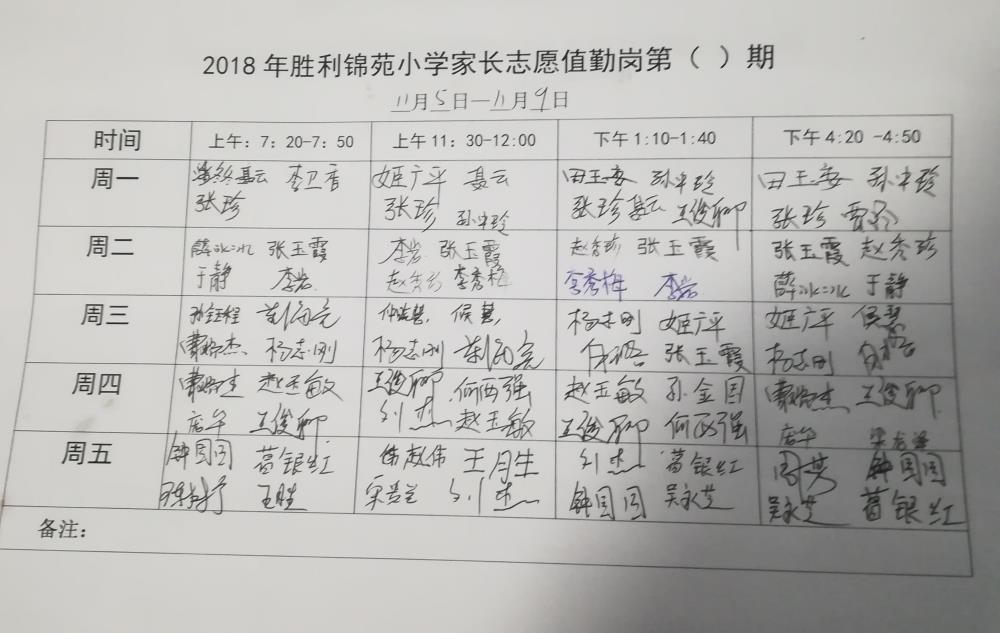 2018年胜利锦苑小学家长志愿值勤岗第（ ）期
11月5日—11月9日
时间 上午：7：20-7：50 上午11：30-12:00 下午1:10-1:40 下午4:20 -4:50
周一 聂云 李卫香 姬广平 聂云 田玉委 孙中玲 田玉委 孙中玲
张珍 张珍 孙中玲 张珍 聂云 王俊卿 张珍
周二 薛冰冰 张玉霞 李岩 张玉霞 赵秀珍 张玉霞 张玉霞 赵秀珍
于静 李岩 赵秀珍 李秀梅 李秀梅 李岩 薛冰冰 于静
周三 侯慧 杨志刚 姬广平 姬广平 侯慧
杨志刚 杨志刚 张玉霞 杨志刚
周四 赵玉敏 王俊卿 何西强 赵玉敏 孙金国 王俊卿
唐华 王俊卿 刘杰 赵玉敏 王俊卿 何西强 唐华
周五 钟国国 葛银红 王月生 刘杰 葛银红 周芳 钟国国
王胜 刘杰 钟国国 吴永芝 吴永芝 葛银红
备注：